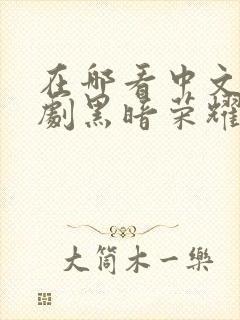 在哪看中文
劇黑暗荣耀
大筒木一樂